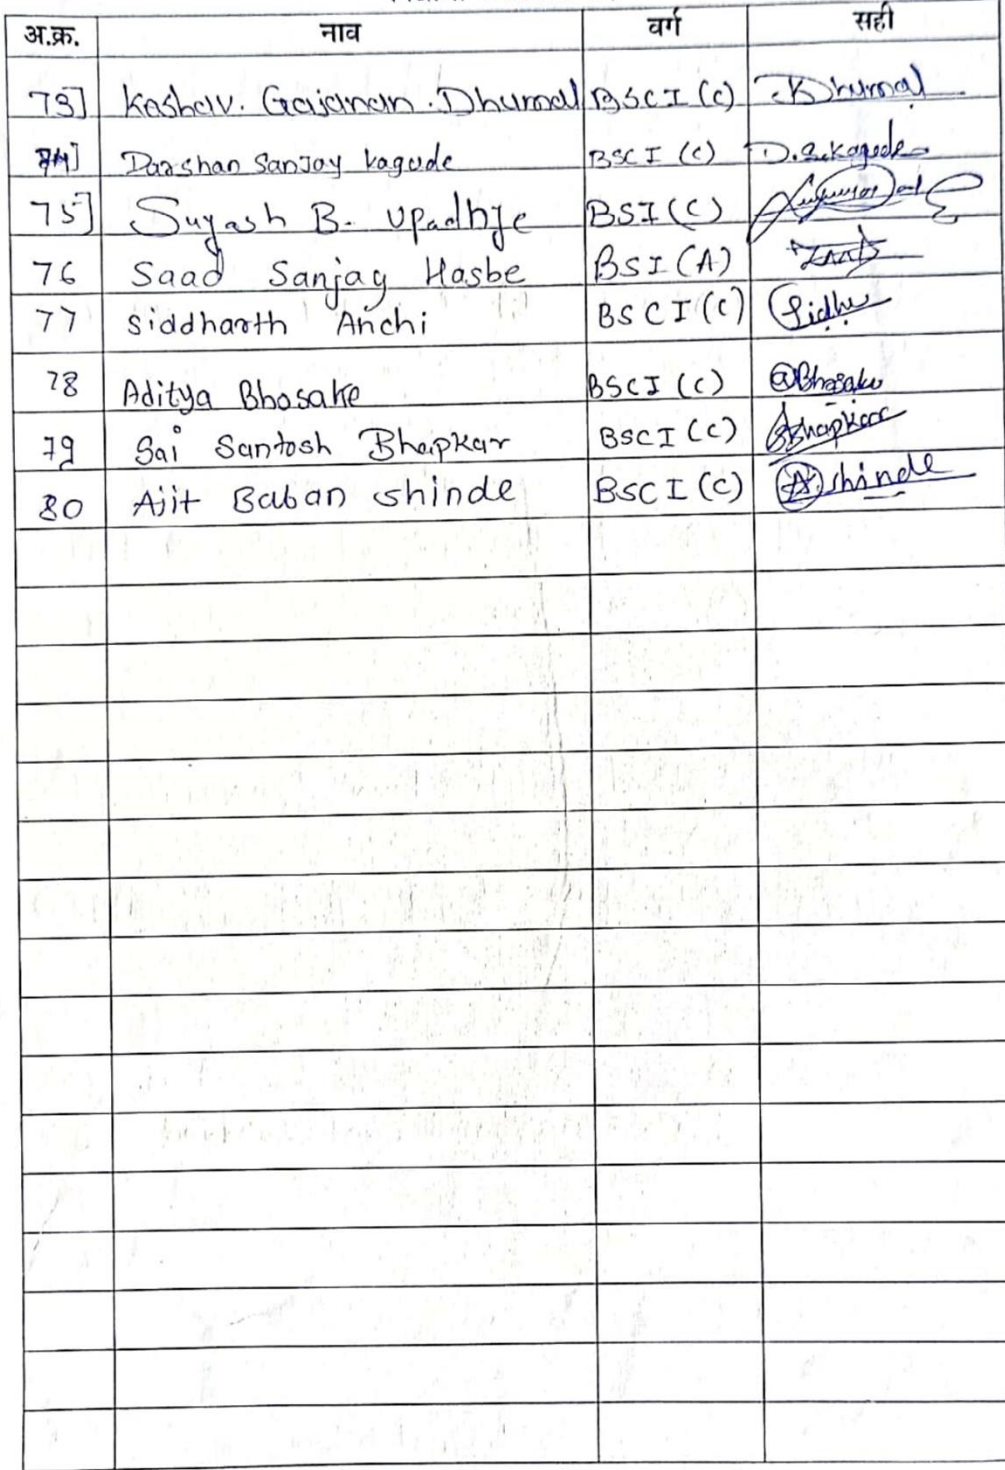 अ.क्र. नाव वर्ग सही
73] Keshav. Gajanan. Dhumal BSC I (C) K Dhumal
74] Darshan Sanjay Kagude BSC I (C) D.S.Kagude
75] Suyash B. Upadhye BSI (C)
76 Saad Sanjay Hasbe BSI (A)
77 Siddharth Anchi BSCI (C) Sidhu
78 Aditya Bhosake BSCI (C) @Bhosake
79 Sai Santosh Bhapkar BSCI (C) SBhapkar
80 Ajit Baban Shinde BSCI (C) A.Shinde